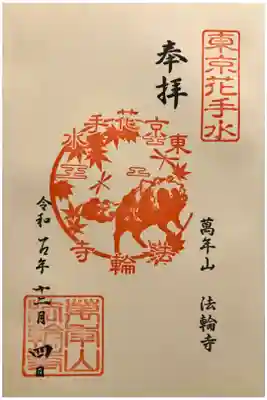 東京花手水
奉拝
東京花手水
法輪寺
萬年山 法輪寺
令和五年十二月四日
萬年山